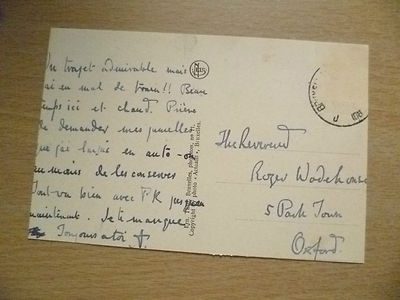 Un trajet admirable mais
j'ai eu mal de train!! Beau
temps ici et chaud. Prière
de demander mes jumelles
que j'ai laissé en auto - 
au mois de les conserver
Tout va bien avec F.K. jusque
maintenant. Je te manque
Toujours à toi
Bruxelles
Copyright by photo
The Reverend
Roger Wodehouse
5 Park Town
Oxford.